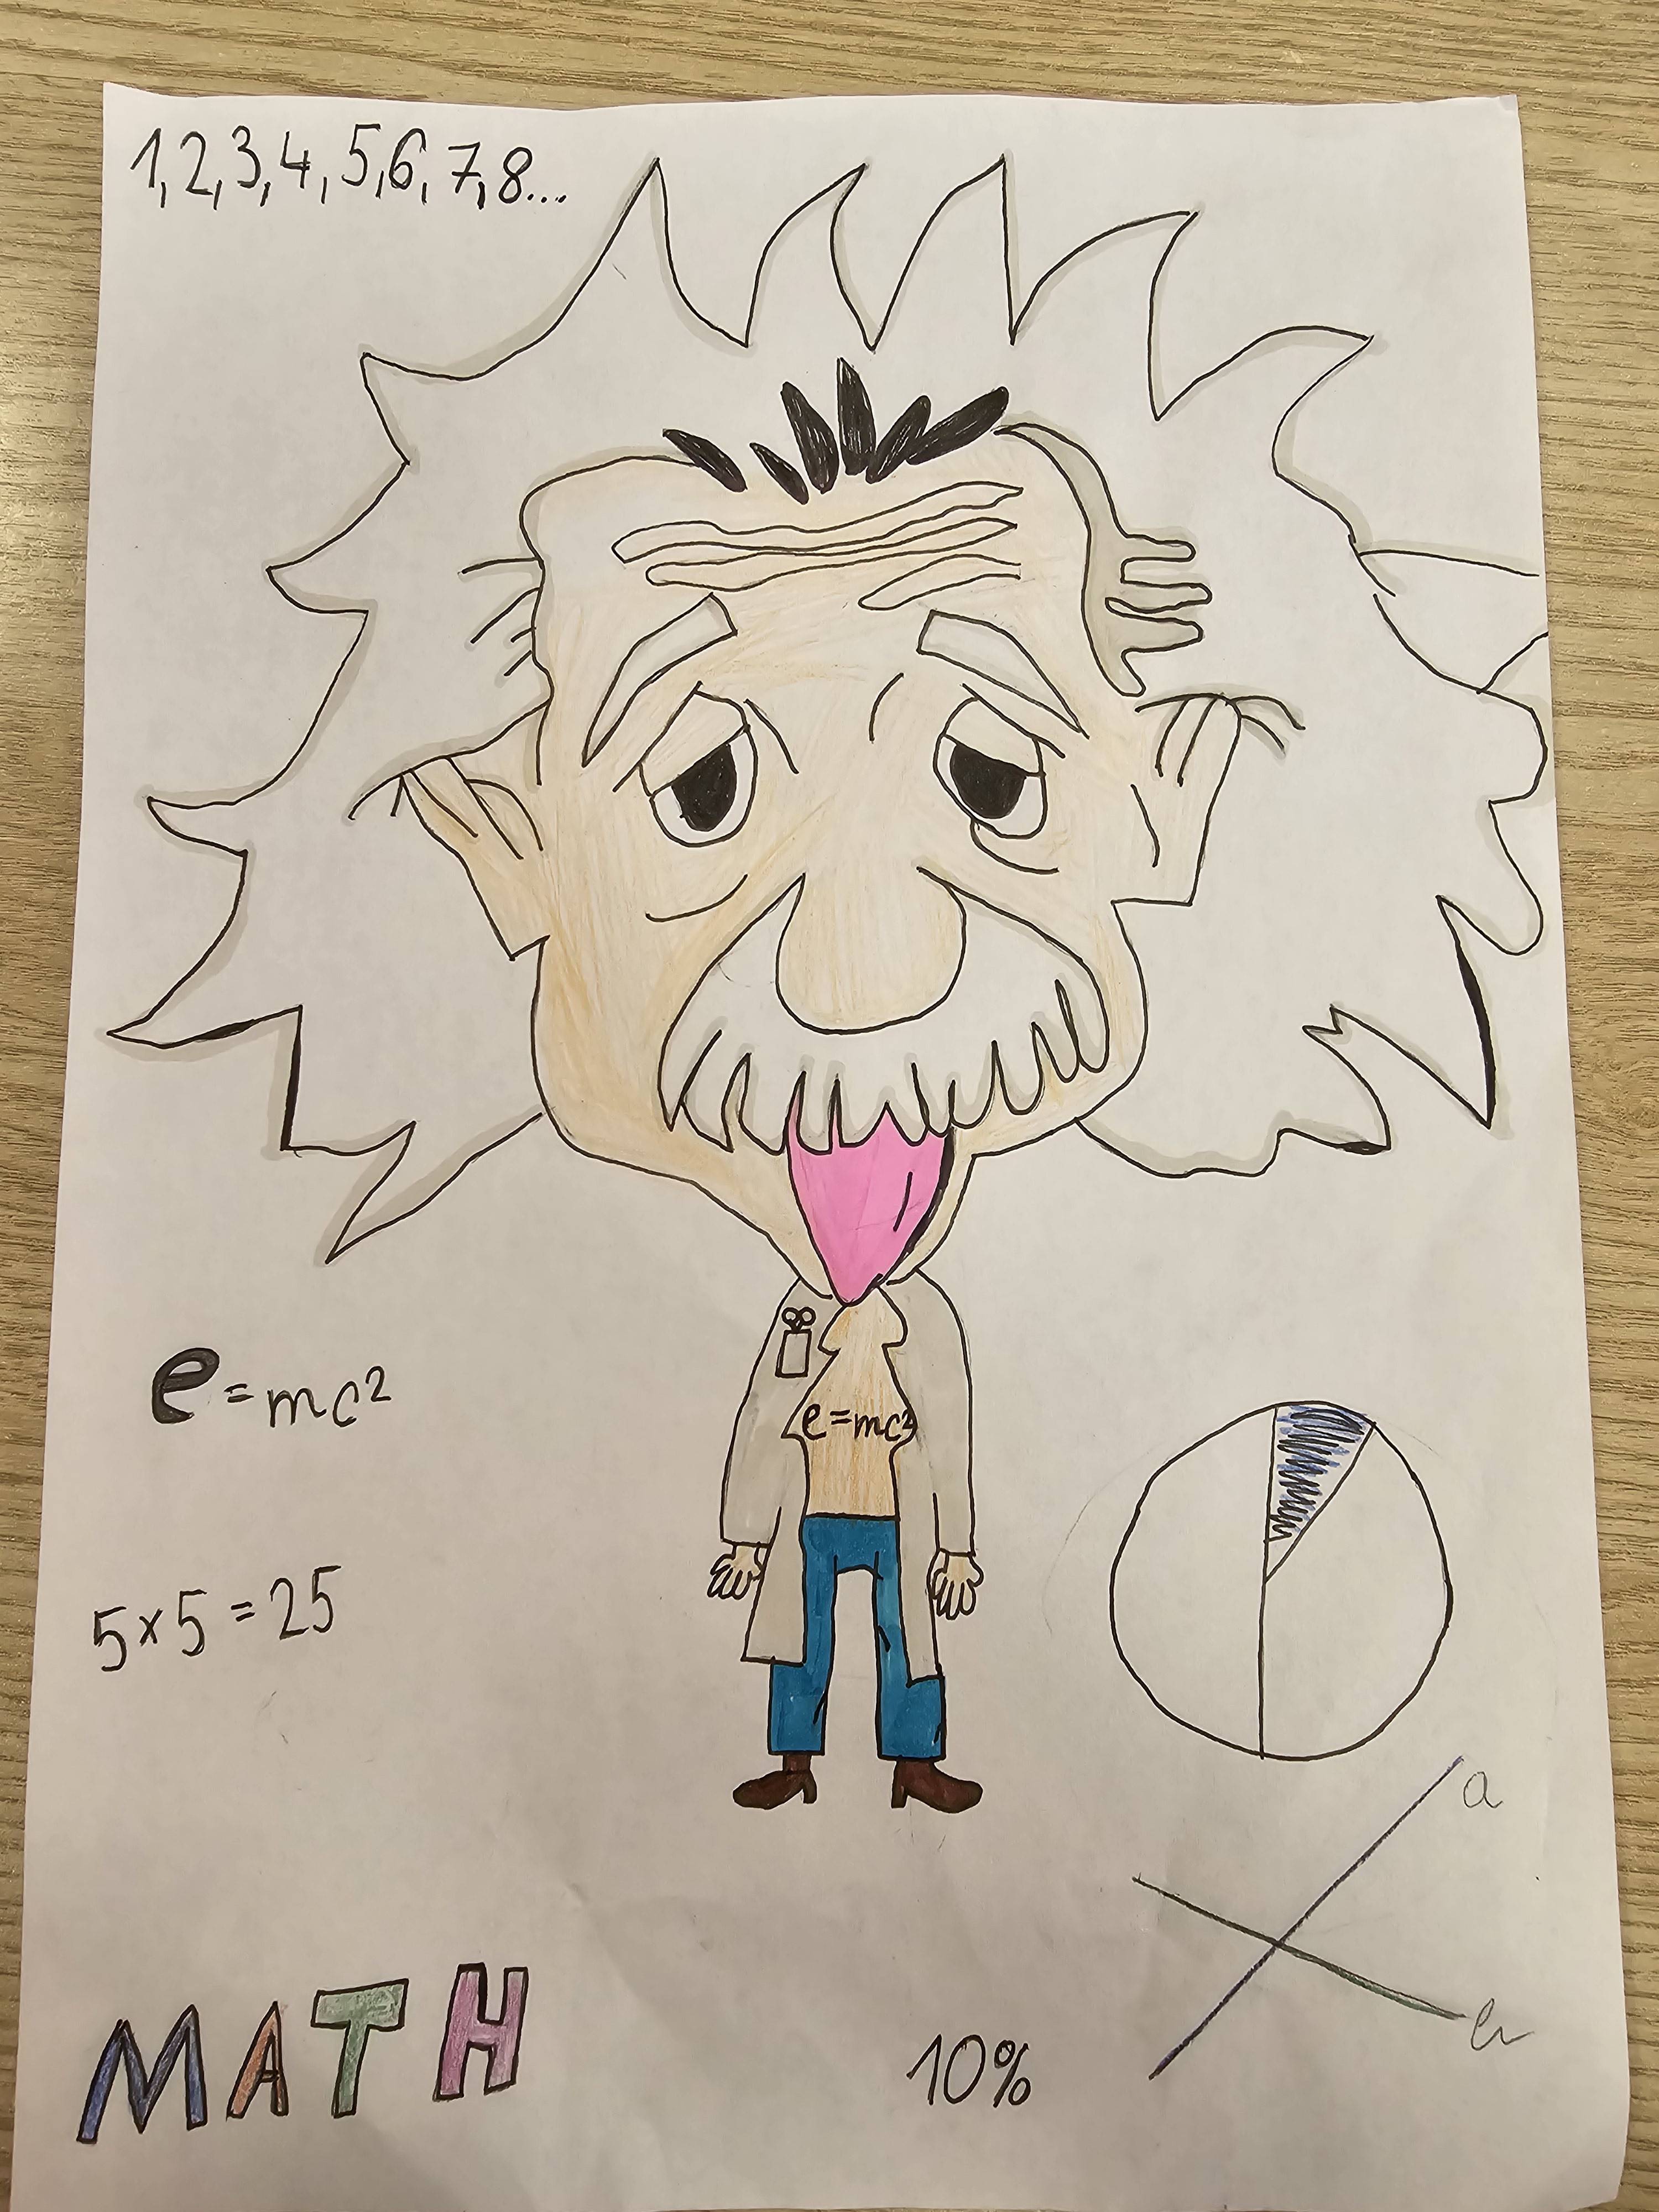 1,2,3,4,5,6,7,8...
e=mc²
e=mc²
5×5=25
a
MATH
10%